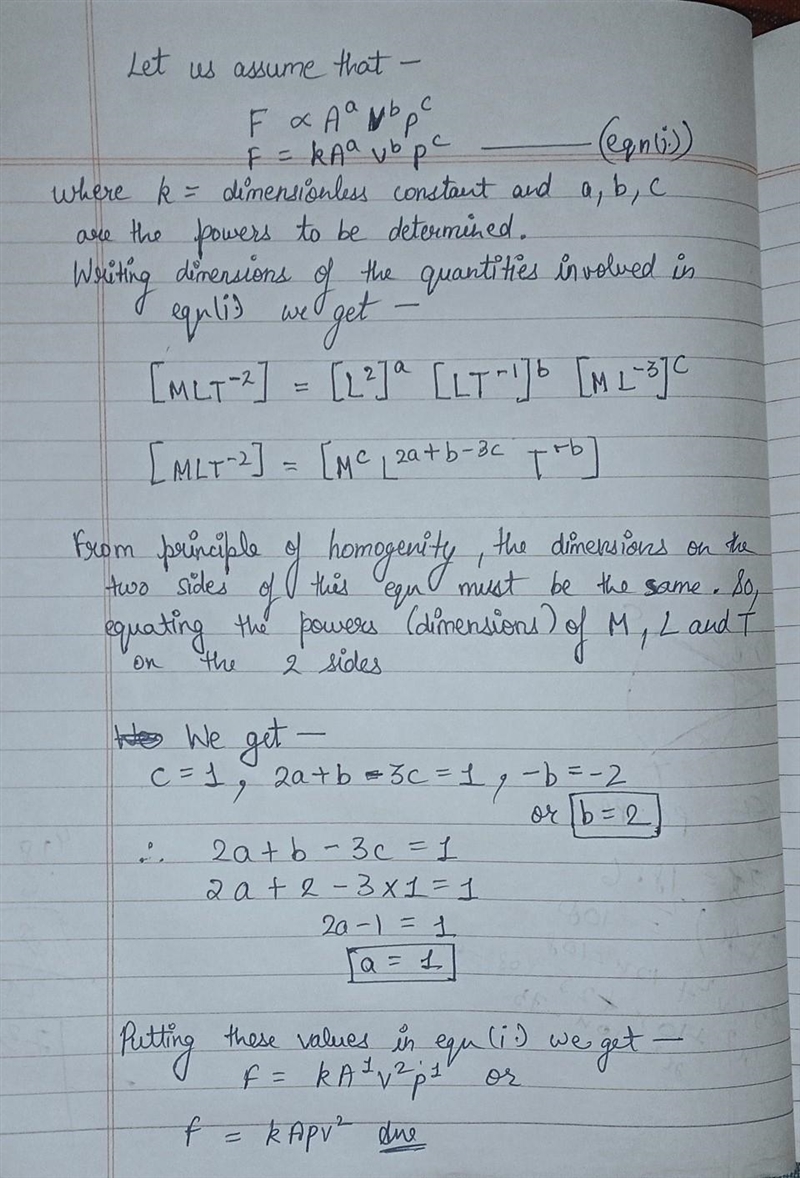 Let us assume that —
F ∝ Aᵃ vᵇ ρᶜ
F = kAᵃ vᵇ ρᶜ ——— (eqn(i.))
where k = dimensionless constant and a, b, c
are the powers to be determined.
Writing dimensions of the quantities involved in
eqn(i) we get —
[MLT⁻²] = [L²]ᵃ [LT⁻¹]ᵇ [ML⁻³]ᶜ
[MLT⁻²] = [Mᶜ L²ᵃ⁺ᵇ⁻³ᶜ T⁻ᵇ]
From principle of homogenity, the dimensions on the
two sides of this equn must be the same. So,
equating the powers (dimensions) of M, L and T
on the 2 sides
We get —
c = 1, 2a + b - 3c = 1, -b = -2
or b = 2
∴ 2a + b - 3c = 1
2a + 2 - 3×1 = 1
2a - 1 = 1
a = 1
Putting these values in equn (i.) we get —
F = kA¹v²ρ¹ or
f = kAρv²